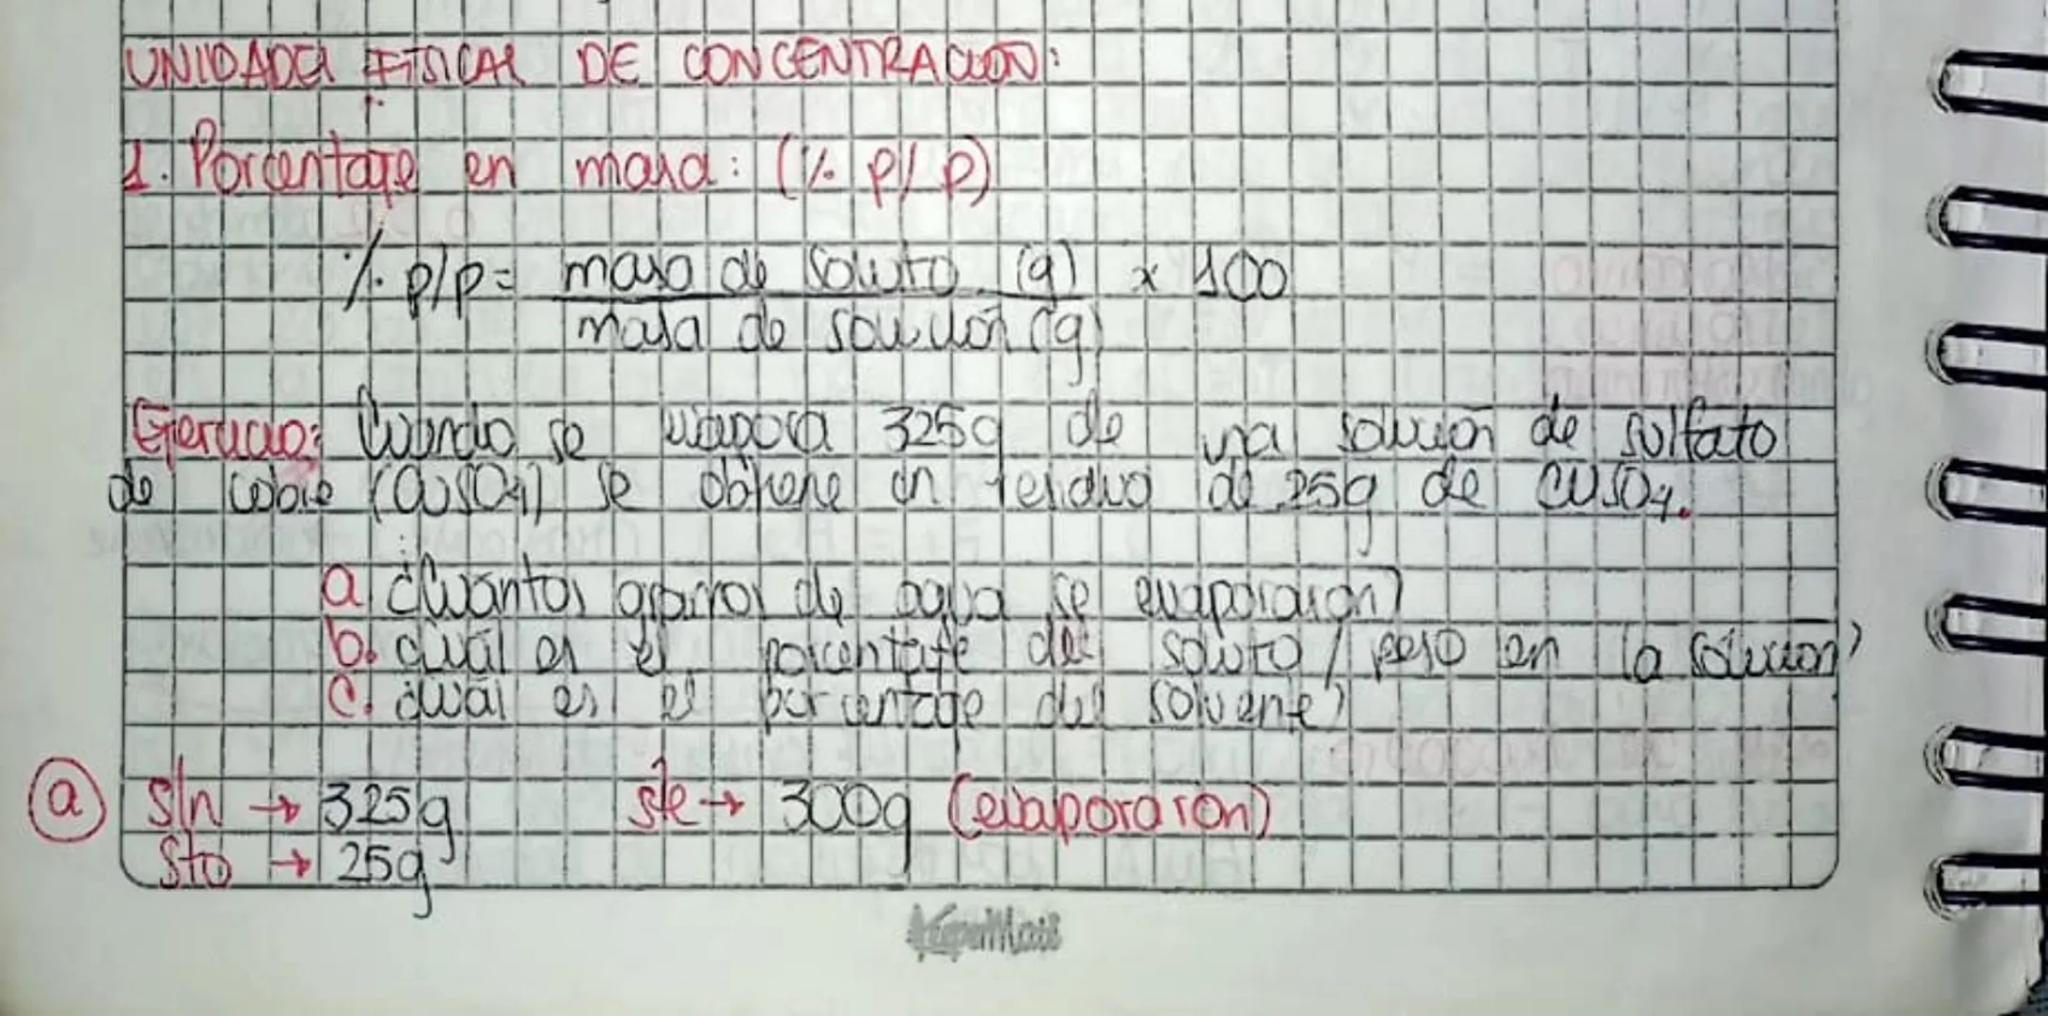 UNIDADES FISICAS DE CONCENTRACION:
1. Porcentaje en masa: (% p/p)
% p/p = masa de soluto (g) x 100
masa de solución (g)
Ejercicio: Cuando se evapora 325g de una solución de sulfato
de cobre (CuSO4) se obtiene un residuo de 25g de CuSO4.
a. ¿Cuántos gramos de agua se evaporaron?
b. ¿Cuál es el porcentaje del soluto / peso en la solución?
c. ¿Cuál es el porcentaje del solvente?
a sln → 325g ste → 300g (evaporaron)
sto → 25g